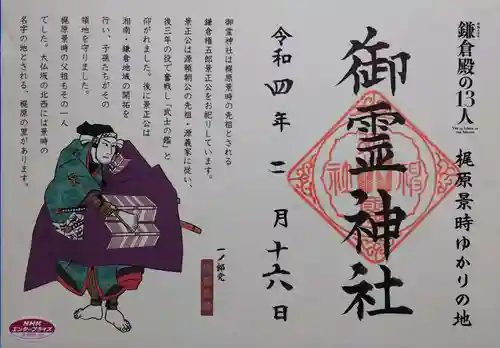 鎌倉殿の13人
梶原景時ゆかりの地
御霊神社
令和四年二月十六日
御霊神社は梶原景時の先祖とされる
鎌倉権五郎景正公をお祀りしています。
景正公は源頼朝公の先祖・源義家に従い、
後三年の役で奮戦し「武士の鑑」と
仰がれました。後に景正公は
湘南・鎌倉地域の開拓を
行い、子孫たちがその
領地を守りました。
梶原景時の父祖もその一人
でした。大仏坂の北西には景時の
名字の地とされる、梶原の里があります。
NHK
エンタープライズ